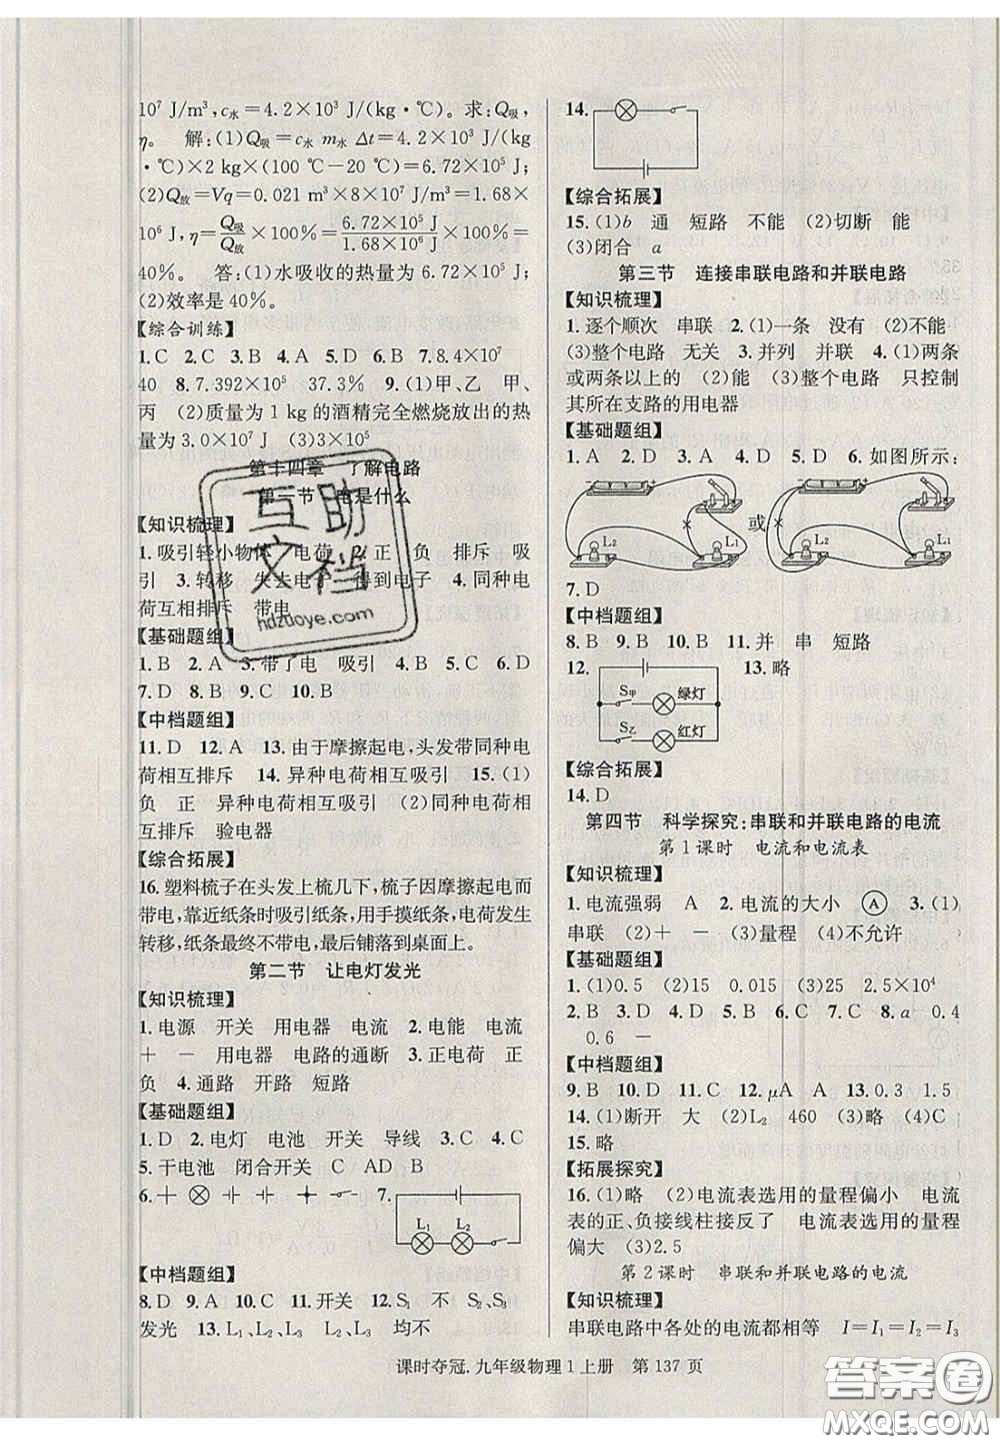 10⁷ J/m³, c水=4.2×10³ J/(kg·℃)。求:Q吸,
η。 解:(1)Q吸=c水 m水 Δt=4.2×10³ J/(kg
·℃)×2 kg×(100 ℃-20 ℃)=6.72×10⁵ J;
(2)Q放=Vq=0.021 m³×8×10⁷ J/m³=1.68×
10⁶ J,η=Q吸/Q放×100%=6.72×10⁵ J/1.68×10⁶ J×100%=
40%。 答:(1)水吸收的热量为6.72×10⁵ J;
(2)效率是40%。
【综合训练】
1.C 2.C 3.B 4.A 5.D 6.D 7.8.4×10⁷
40 8.7.392×10⁵ 37.3% 9.(1)甲、乙 甲、
丙 (2)质量为1 kg的酒精完全燃烧放出的热
量为3.0×10⁷ J (3)3×10⁵
第十四章 了解电路
第一节 电是什么
【知识梳理】
1.吸引轻小物体 电荷 2.正 负 排斥 吸
引 3.转移 失去电子 得到电子 4.同种电
荷互相排斥 带电
【基础题组】
1.B 2.A 3.带了电 吸引 4.B 5.C 6.D
7.D 8.B 9.C 10.B
【中档题组】
11.D 12.A 13.由于摩擦起电,头发带同种电
荷相互排斥 14.异种电荷相互吸引 15.(1)
负 正 异种电荷相互吸引 (2)同种电荷相
互排斥 验电器
【综合拓展】
16.塑料梳子在头发上梳几下,梳子因摩擦起电而
带电,靠近纸条时吸引纸条,用手摸纸条,电荷发生
转移,纸条最终不带电,最后铺落到桌面上。
第二节 让电灯发光
【知识梳理】
1.电源 开关 用电器 电流 2.电能 电流
+ - 用电器 电路的通断 3.正电荷 正
负 4.通路 开路 短路
【基础题组】
1.D 2.电灯 电池 开关 导线 3.C 4.C
5.干电池 闭合开关 C AD B
6. 7.
L₁ L₂
【中档题组】
8.D 9.A 10.C 11.开关 12.S₁ 不 S₂、S₃
发光 13.L₁、L₂、L₃ L₁、L₂、L₃ 均不
14.
【综合拓展】
15.(1)b 通 短路 不能 (2)切断 能
(3)闭合 a
第三节 连接串联电路和并联电路
【知识梳理】
1.逐个顺次 串联 2.(1)一条 没有 (2)不能
(3)整个电路 无关 3.并列 并联 4.(1)两条
或两条以上的 (2)能 (3)整个电路 只控制
其所在支路的用电器
【基础题组】
1.A 2.D 3.A 4.D 5.D 6.如图所示:
或
L₂ L₁ L₂ L₁
7.D
【中档题组】
8.B 9.B 10.B 11.并 串 短路
12. 13.略
S甲 绿灯
S乙 红灯
【综合拓展】
14.D
第四节 科学探究:串联和并联电路的电流
第1课时 电流和电流表
【知识梳理】
1.电流强弱 A 2.电流的大小 Ⓐ 3.(1)
串联 (2)+ - (3)量程 (4)不允许
【基础题组】
1.(1)0.5 (2)15 0.015 (3)25 2.5×10⁴
2.B 3.D 4.D 5.C 6.B 7.C 8.a 0.4
0.6 -
【中档题组】
9.B 10.D 11.C 12.μA A 13.0.3 1.5
14.(1)断开 大 (2)L₂ 460 (3)略 (4)C
15.略
【拓展探究】
16.(1)略 (2)电流表选用的量程偏小 电流
表的正、负接线柱接反了 电流表选用的量程
偏大 (3)2.5
第2课时 串联和并联电路的电流
【知识梳理】
串联电路中各处的电流都相等 I=I₁=I₂=I₃
课时夺冠.九年级物理1上册 第137页
互助文档
hdzuoye.com
答案圈
MXQE.COM